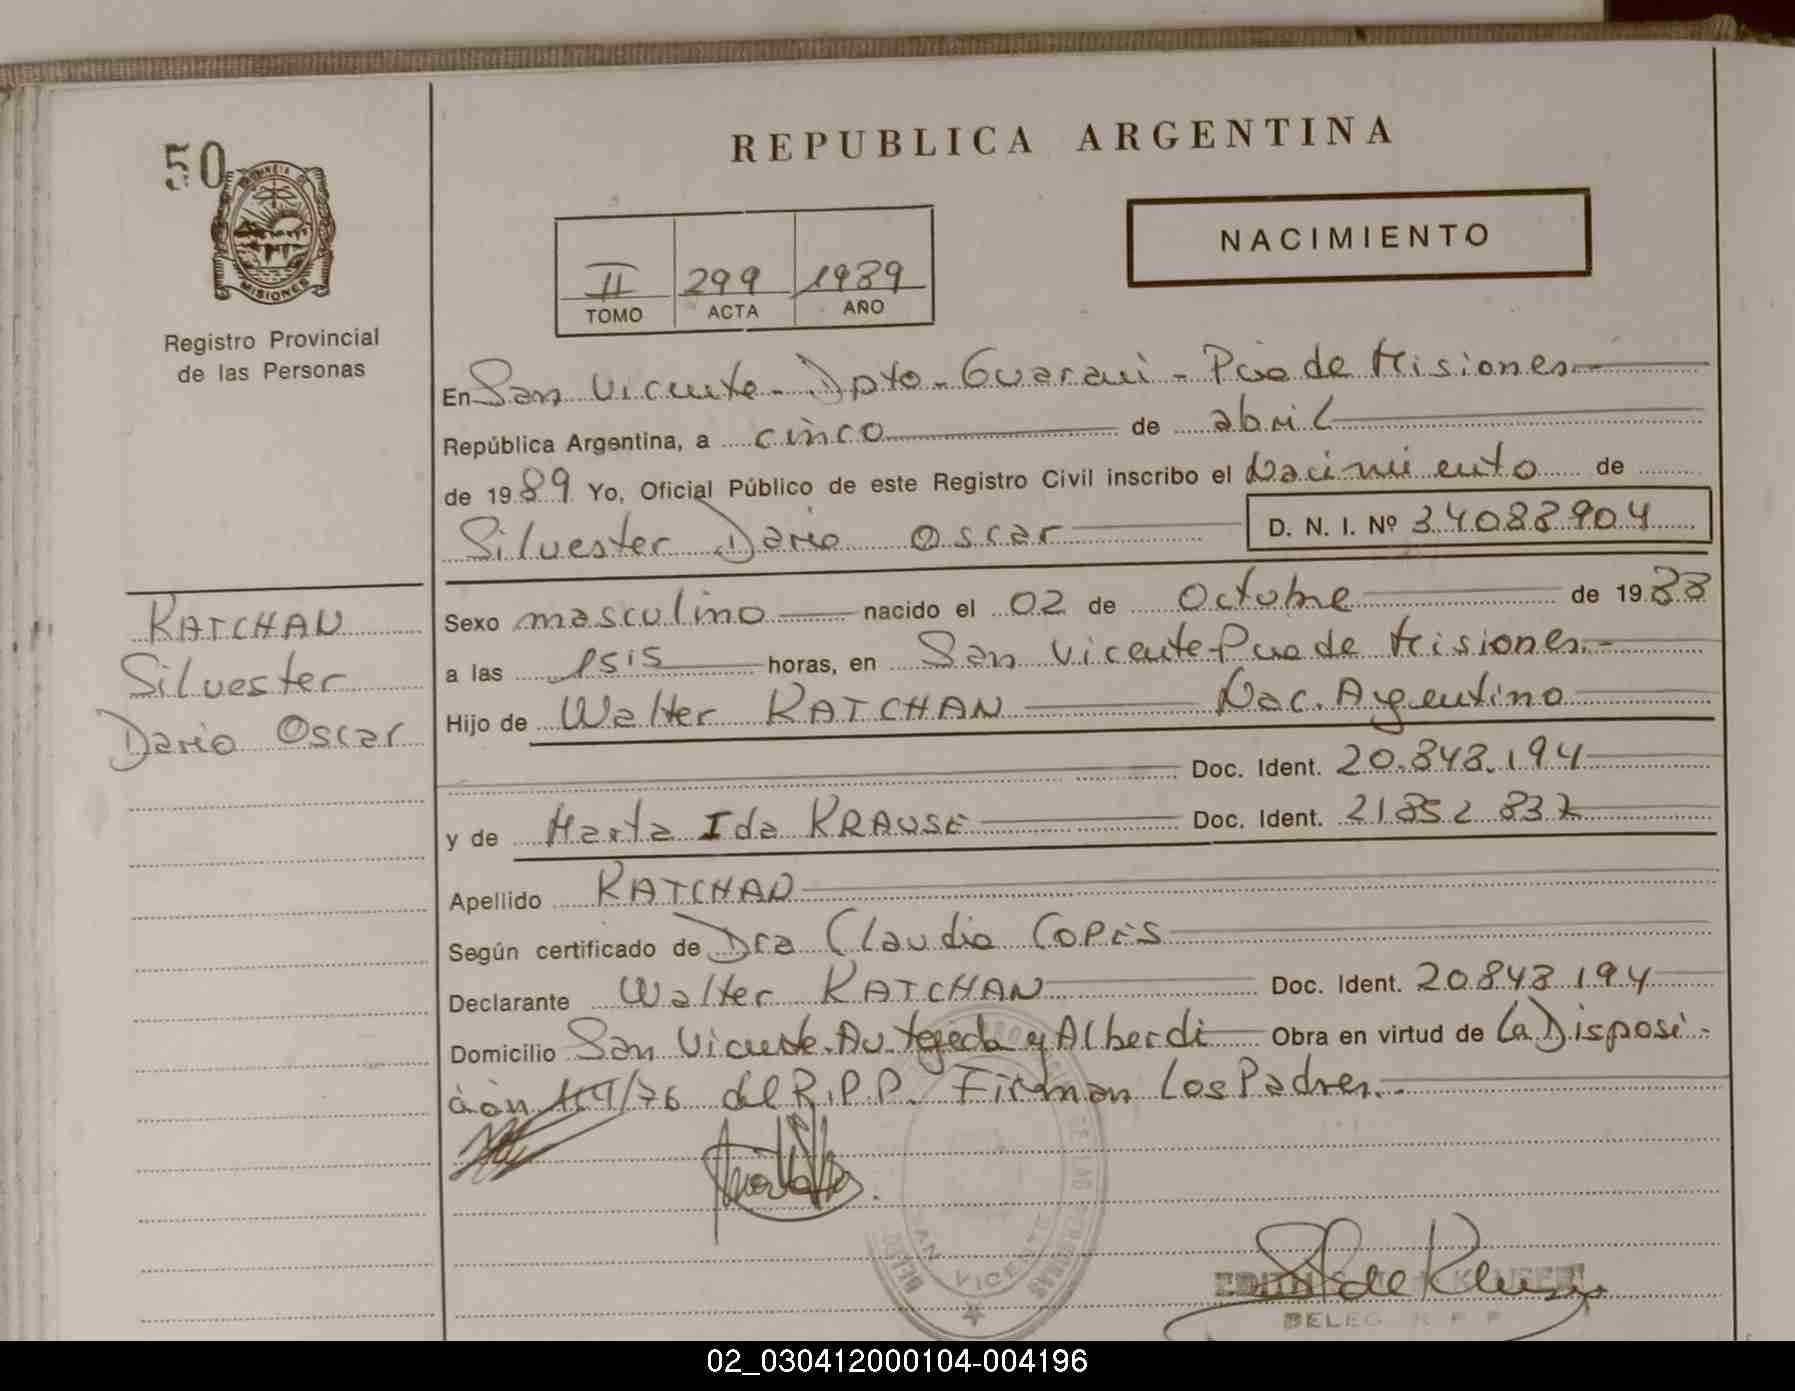 50
REPUBLICA ARGENTINA
NACIMIENTO
II 299 1989
TOMO ACTA AÑO
MISIONES
Registro Provincial
de las Personas
En San Vicente - Dpto - Guarani - Pcia de Misiones -
República Argentina, a cinco de abril
de 1989 Yo, Oficial Público de este Registro Civil inscribo el Nacimiento de
Silvester Dario Oscar D. N. I. Nº 34088904
KATCHAN
Silvester
Dario Oscar
Sexo masculino nacido el 02 de Octubre de 1988
a las 1515 horas, en San Vicente Pcia de Misiones.-
Hijo de Walter KATCHAN Nac. Argentino
Doc. Ident. 20.848.194
y de Marta Ida KRAUSE Doc. Ident. 21852 837
Apellido KATCHAN
Según certificado de Dra Claudia Copes
Declarante Walter KATCHAN Doc. Ident. 20848194
Domicilio San Vicente. Av. Tejeda y Alberdi Obra en virtud de La Disposi-
ción 164/76 del R.P.P. Firman Los Padres.-
02_030412000104-004196